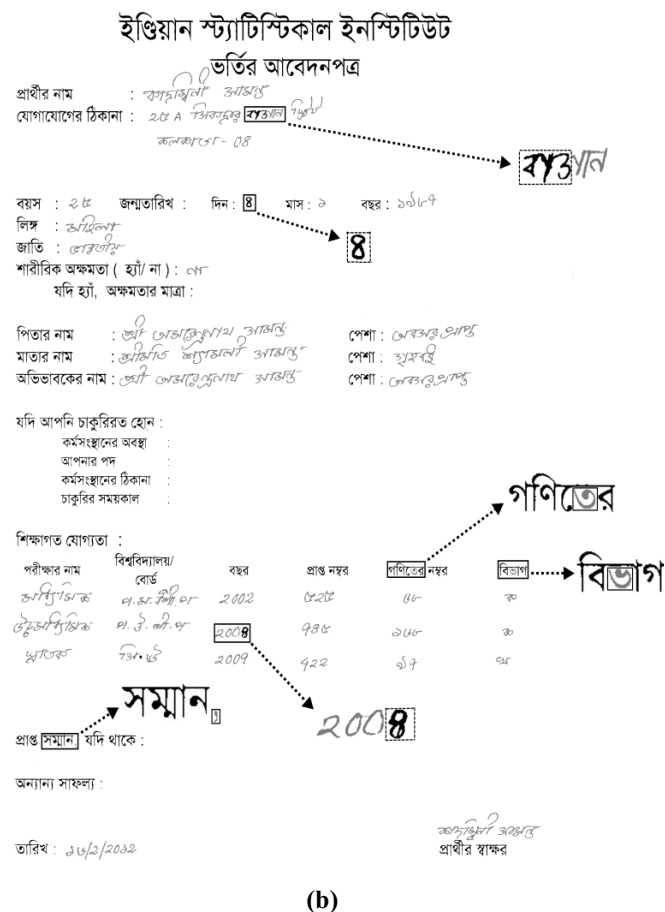 ইণ্ডিয়ান স্ট্যাটিস্টিকাল ইনস্টিটিউট
ভর্তির আবেদনপত্র
প্রার্থীর নাম : কাদম্বিনী সামন্ত
যোগাযোগের ঠিকানা : ২৫ A সিকদার বাগান স্ট্রীট
কলকাতা - 08
বাগান
বয়স : ২৫ জন্মতারিখ : দিন : ৪ মাস : ৯ বছর : ১৯৮৭
লিঙ্গ : মহিলা
৪
জাতি : ভারতীয়
শারীরিক অক্ষমতা ( হ্যাঁ/ না ) : না
যদি হ্যাঁ, অক্ষমতার মাত্রা :
পিতার নাম : শ্রী অমরেন্দ্রনাথ সামন্ত পেশা : অবসরপ্রাপ্ত
মাতার নাম : শ্রীমতি শ্যামলী সামন্ত পেশা : গৃহবধূ
অভিভাবকের নাম : শ্রী অমরেন্দ্রনাথ সামন্ত পেশা : অবসরপ্রাপ্ত
যদি আপনি চাকুরিরত হোন :
কর্মসংস্থানের অবস্থা :
আপনার পদ :
কর্মসংস্থানের ঠিকানা :
চাকুরির সময়কাল :
গণিতের
শিক্ষাগত যোগ্যতা :
পরীক্ষার নাম বিশ্ববিদ্যালয়/ বোর্ড বছর প্রাপ্ত নম্বর গণিতের নম্বর বিভাগ
বিভাগ
মাধ্যমিক প.ম.শি.প 2002 ৫২৫ ৬৮ ক
উচ্চমাধ্যমিক প.উ.শি.প ২০০৪ ৭৪৫ ১৬৮ ক
স্নাতক সি.ইউ ২০০৭ ৭২২ ৯৭ খ
সম্মান,
২০০৪
প্রাপ্ত সম্মান, যদি থাকে :
অন্যান্য সাফল্য :
তারিখ : ১৬/২/২০১২
কাদম্বিনী সামন্ত
প্রার্থীর স্বাক্ষর
(b)